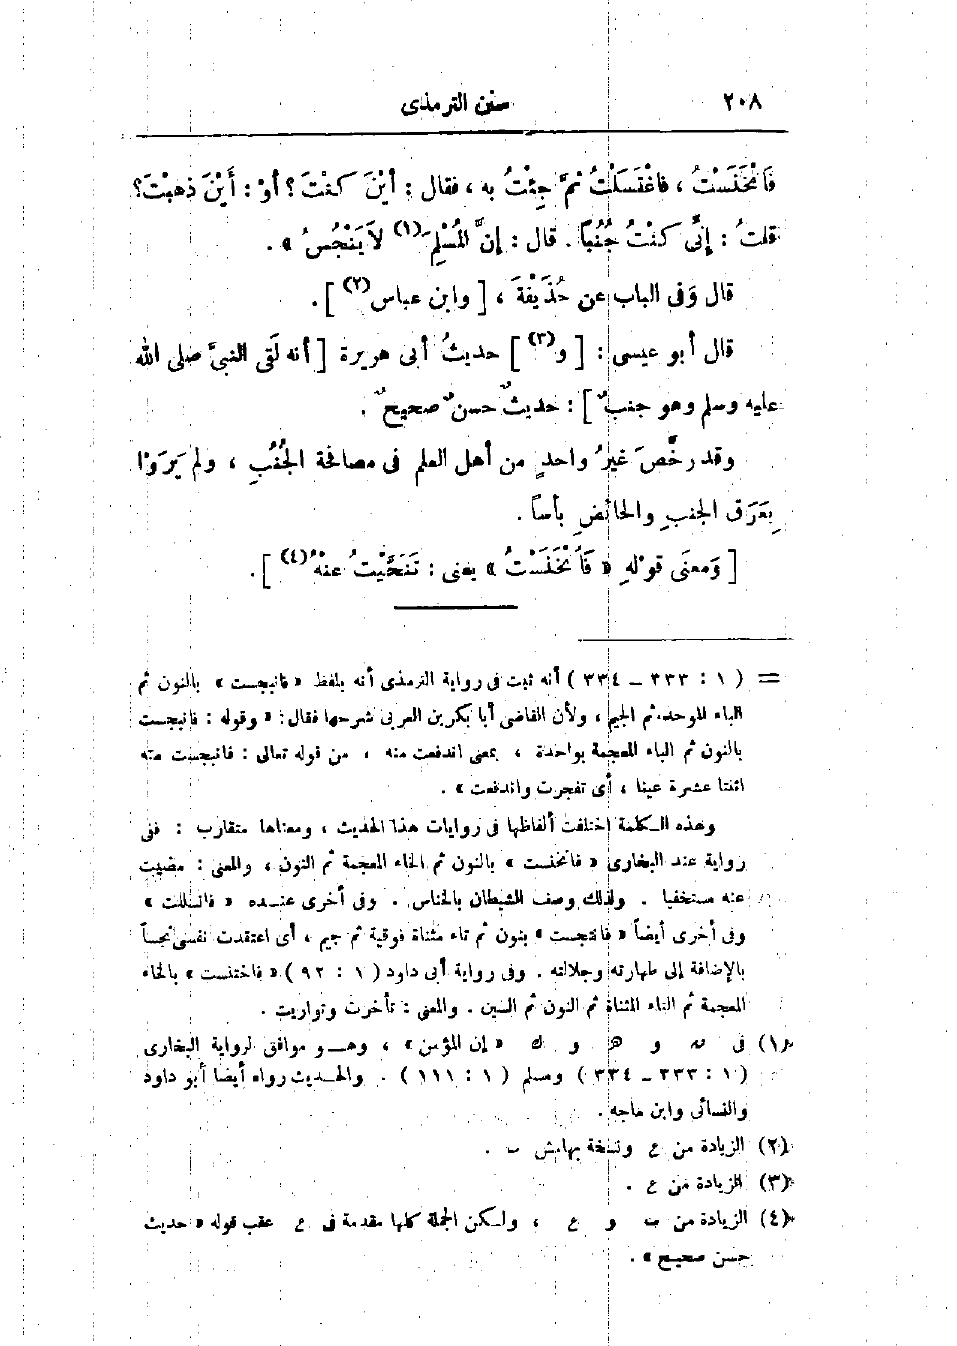 ٢٠٨ سنن الترمذى
فَانْخَنَسْتُ ، فاغْتَسَلْتُ ثمَّ جِئْتُ به ، فقال : أيْنَ كنْتَ ؟ أوْ : أَيْنَ ذهبْتَ ؟
قلتُ : إنِّى كنْتُ جُنُبًا . قال : إنَّ المُسْلِمَ(١) لاَ يَنْجُسُ » .
قال وَفى الباب عن حُذَيْفَةَ ، [ وابن عباس(٢) ] .
قال أبو عيسى : [ و(٣) ] حديثُ أبى هريرة [ أنه لَقى النبىَّ صلى الله
عليه وسلم وهو جنبٌ ] : حديثٌ حسنٌ صحيحٌ .
وقد رخَّصَ غيرُ واحدٍ من أهل العلم فى مصافحة الجُنُبِ ، ولم يَرَوْا
بِعَرَق الجنبِ والحائضِ بأسًا .
[ وَمعنَى قوْلهِ « فَانْخَنَسْتُ » يعنى : تَنَحَّيْتُ عنْهُ(٤) ] .
= ( ١ : ٣٣٣ ـ ٣٣٤ ) أنه ثبت فى رواية الترمذى أنه بلفظ « فانبجست » بالنون ثم
الباء الموحدة ثم الجيم ، ولأن القاضى أبا بكر بن العربى شرحها فقال : « وقوله : فانبجست
بالنون ثم الباء المعجمة بواحدة ، بمعنى اندفعت منه ، من قوله تعالى : فانبجست منه
اثنتا عشرة عينا ، أى تفجرت واندفعت » .
وهذه الكلمة اختلفت ألفاظها فى روايات هذا الحديث ، ومعناها متقارب : ففى
رواية عند البخارى « فانخنست » بالنون ثم الخاء المعجمة ثم النون ، والمعنى : مضيت
عنه مستخفيا . ولذلك وصف الشيطان بالخناس . وفى أخرى عنده « فانسللت »
وفى أخرى أيضاً « فانتجست » بنون ثم تاء مثناة فوقية ثم جيم ، أى اعتقدت نفسى نجساً
بالإضافة إلى طهارته وجلالته . وفى رواية أبى داود ( ١ : ٩٢ ) « فاختنست » بالخاء
المعجمة ثم التاء المثناة ثم النون ثم السين . والمعنى : تأخرت وتواريت .
(١) فى مه و هـ و ك « إن المؤمن » ، وهو موافق لرواية البخارى
( ١ : ٣٣٣ ـ ٣٣٤ ) ومسلم ( ١ : ١١١ ) . والحديث رواه أيضا أبو داود
والنسائى وابن ماجه .
(٢) الزيادة من ع ونسخة بهامش ب .
(٣) الزيادة من ع .
(٤) الزيادة من ب و ع ، ولكن الجملة كلها مقدمة فى ع عقب قوله « حديث
حسن صحيح » .